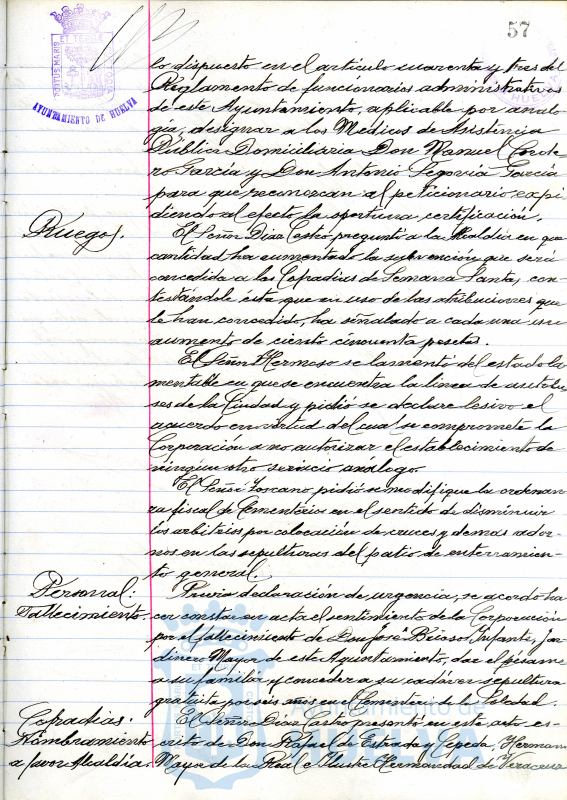 57
AYUNTAMIENTO DE HUELVA
lo dispuesto en el artículo cuarenta y tres del
Reglamento de funcionarios administrativos
de este Ayuntamiento, aplicable por analo
gía, designar a los Medicos de Asistencia
Pública Domiciliaria Don Manuel Corde
ro García y Don Antonio Segovia García
para que reconozcan al peticionario expi
diendo al efecto la oportuna certificación.
Ruegos.
El Señor Diaz Castro preguntó a la Alcaldía en que
cantidad ha aumentado la subvención que será
concedida a las Cofradías de Semana Santa, con
testándole ésta que en uso de las atribuciones que
le han concedido, ha señalado a cada una un
aumento de ciento cincuenta pesetas.
El Señor Hermoso se lamentó del estado la
mentable en que se encuentra la linea de autobu
ses de la Ciudad y pidió se declare lesivo el
acuerdo en virtud del cual se compromete la
Corporación a no autorizar el establecimiento de
ningun otro servicio análogo.
El Señor Toscano pidió se modifique la ordenan
za fiscal de Cementerios en el sentido de disminuir
los arbitrios por colocación de cruces y demas ador
nos en las sepulturas del patio de enterramien
to general.
Personal:
Fallecimiento.
Previa declaración de urgencia, se acordó ha
cer constar en acta el sentimiento de la Corporación
por el fallecimiento de Don José Infante, Jar
dinero Mayor de este Ayuntamiento, dar el pésame
a su familia y conceder a su cadáver sepultura
gratuita por seis años en el Cementerio de la Soledad.
Cofradías:
Nombramiento
a favor Alcaldía.
El Señor Diaz Castro presentó en este acto es
crito de Don Rafael de Estrada y Cepeda, Hermano
Mayor de la Real e Ilustre Hermandad de Veracruz
Ayuntamiento de
HUELVA